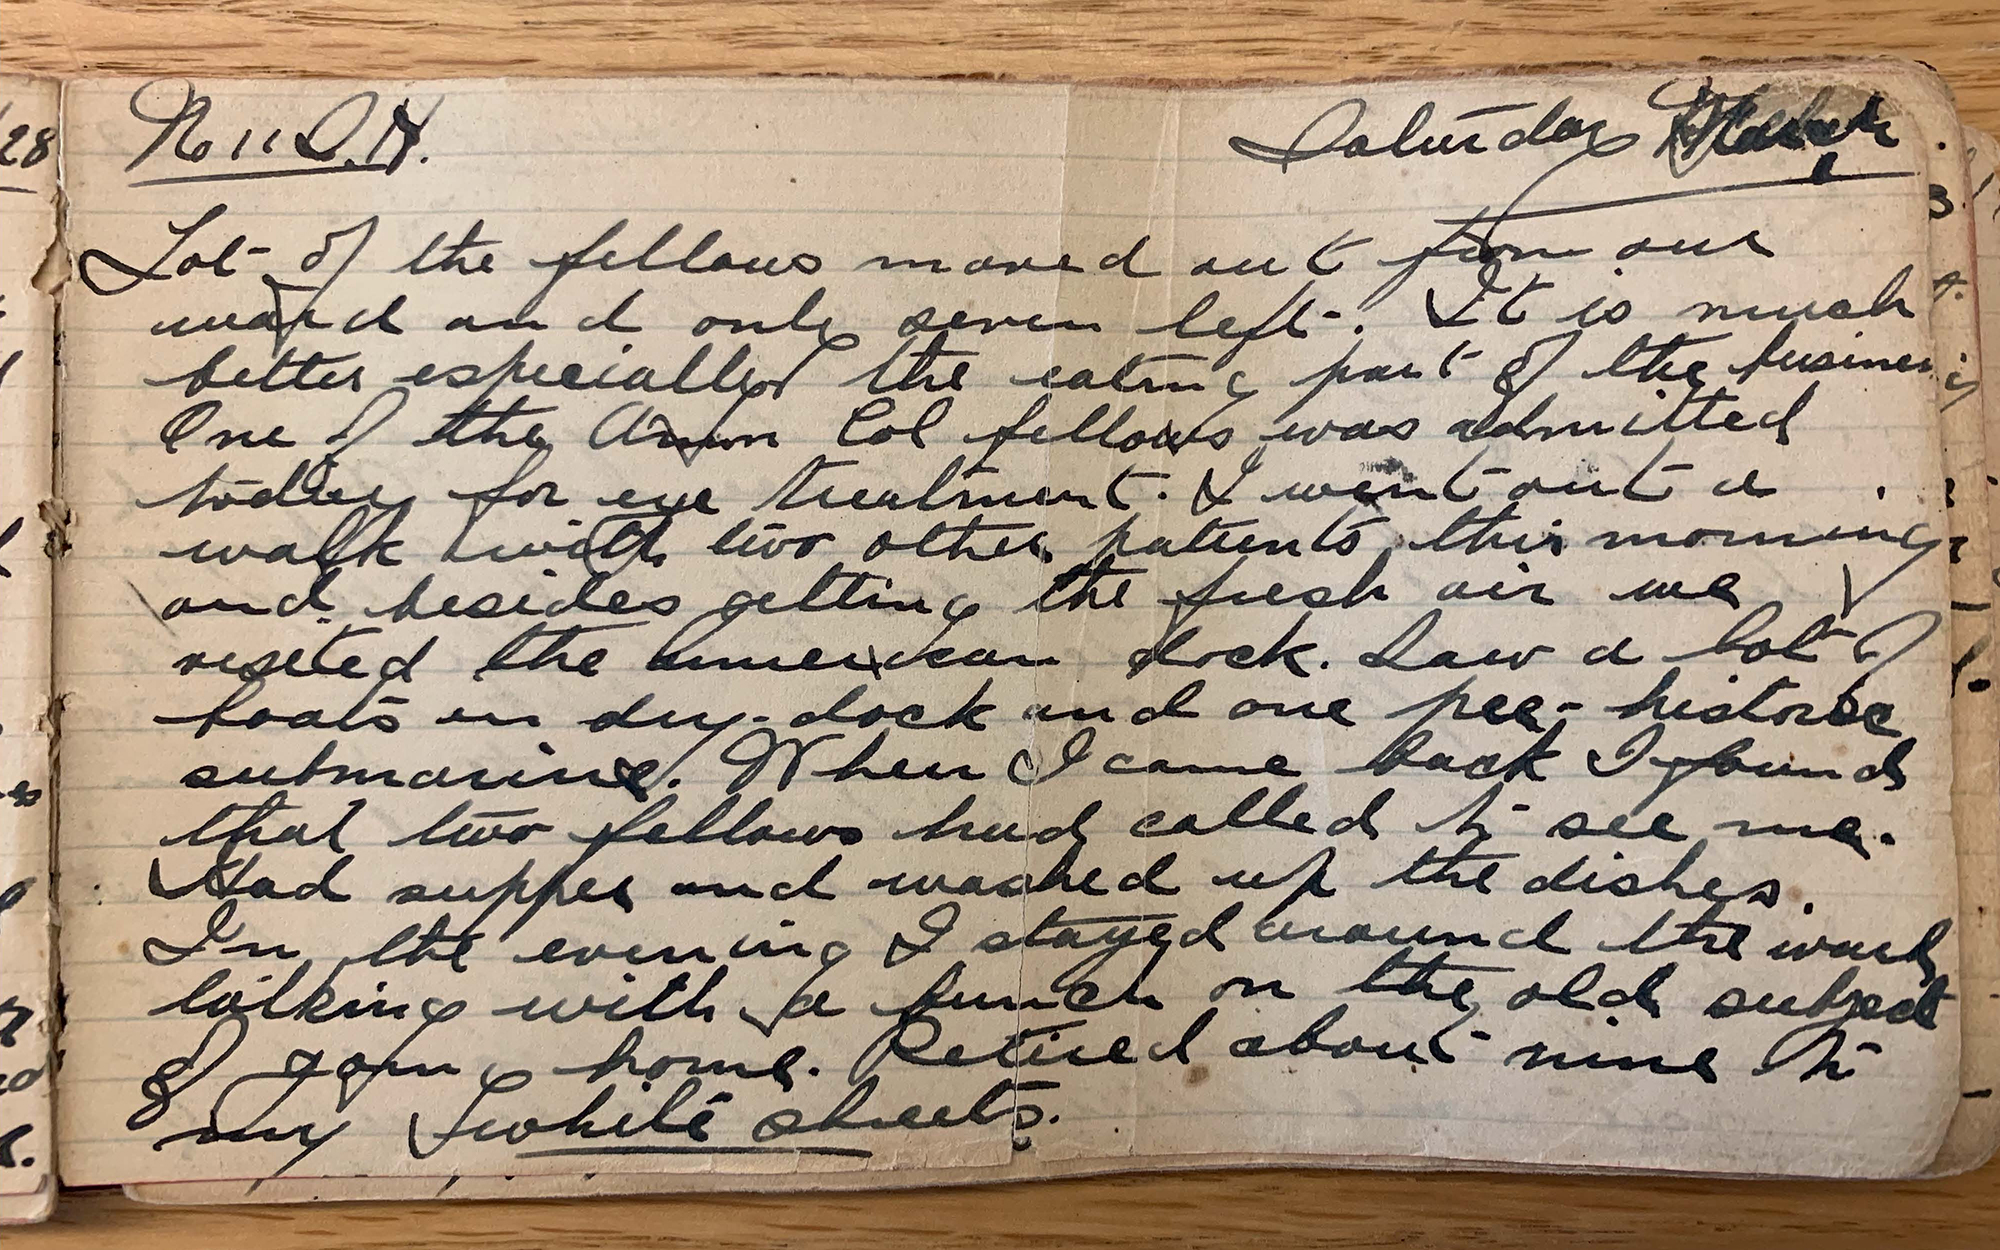 No 11 S.H. Saturday March
Lot of the fellows moved out from our
ward and only seven left. It is much
better especially the eating part of the business
One of the Amm Col fellows was admitted
today for eye treatment. I went out a
walk with two other patients this morning
and besides getting the fresh air we
visited the american dock. Saw a lot of
boats in dry-dock and one pre-historic
submarine. When I came back I found
that two fellows had called to see me.
Had supper and washed up the dishes.
In the evening I stayed around the ward
talking with a bunch on the old subject
of going home. Retired about nine to
my white sheets.